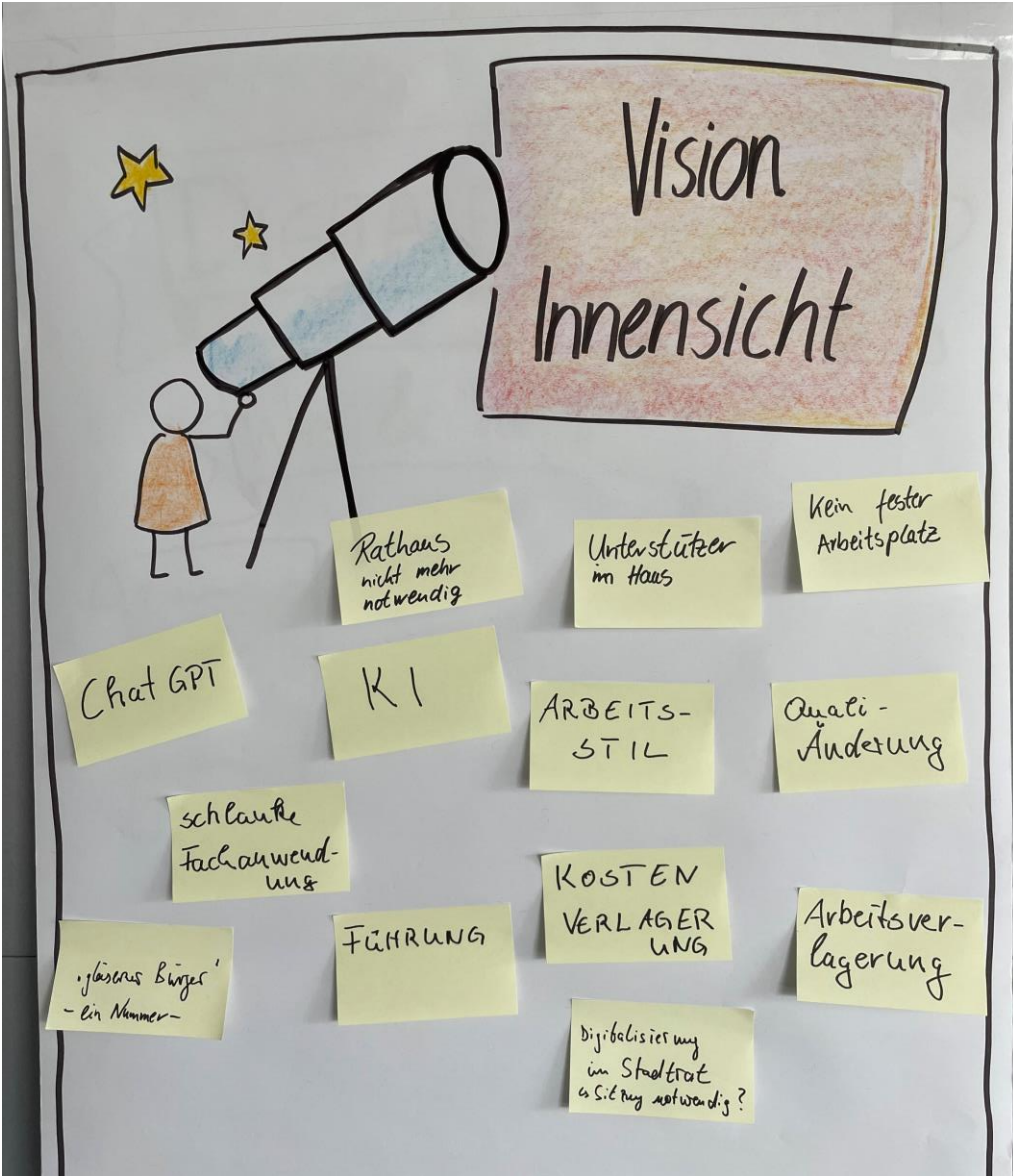 Vision
Innensicht
Rathaus
nicht mehr
notwendig
Unterstützer
im Haus
Kein fester
Arbeitsplatz
Chat GPT
KI
ARBEITS-
STIL
Quali-
Änderung
schlanke
Fachanwend-
ung
KOSTEN
VERLAGER
UNG
Arbeitsver-
lagerung
FÜHRUNG
"gläserner Bürger"
- ein Nummer -
Digitalisierung
im Stadtrat
↳ Sitzung notwendig?